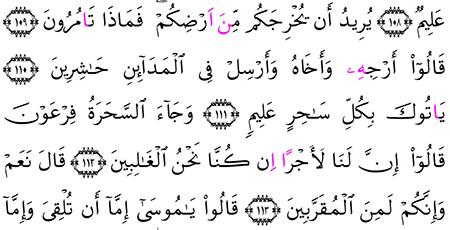 عَلِيمٌ ١٠٨ يُرِيدُ أَن يُخْرِجَكُم مِّنَ اَرْضِكُمْ فَمَاذَا تَامُرُونَ ١٠٩
قَالُوٓاْ أَرْجِهِۦ وَأَخَاهُ وَأَرْسِلْ فِى ٱلْمَدَآئِنِ حَـٰشِرِينَ ١١٠
يَاتُوكَ بِكُلِّ سَـٰحِرٍ عَلِيمٍ ١١١ وَجَآءَ ٱلسَّحَرَةُ فِرْعَوْنَ
قَالُوٓاْ إِنَّ لَنَا لَأَجْرًا اِن كُنَّا نَحْنُ ٱلْغَـٰلِبِينَ ١١٢ قَالَ نَعَمْ
وَإِنَّكُمْ لَمِنَ ٱلْمُقَرَّبِينَ ١١٣ قَالُواْ يَـٰمُوسَىٰٓ إِمَّآ أَن تُلْقِىَ وَإِمَّآ